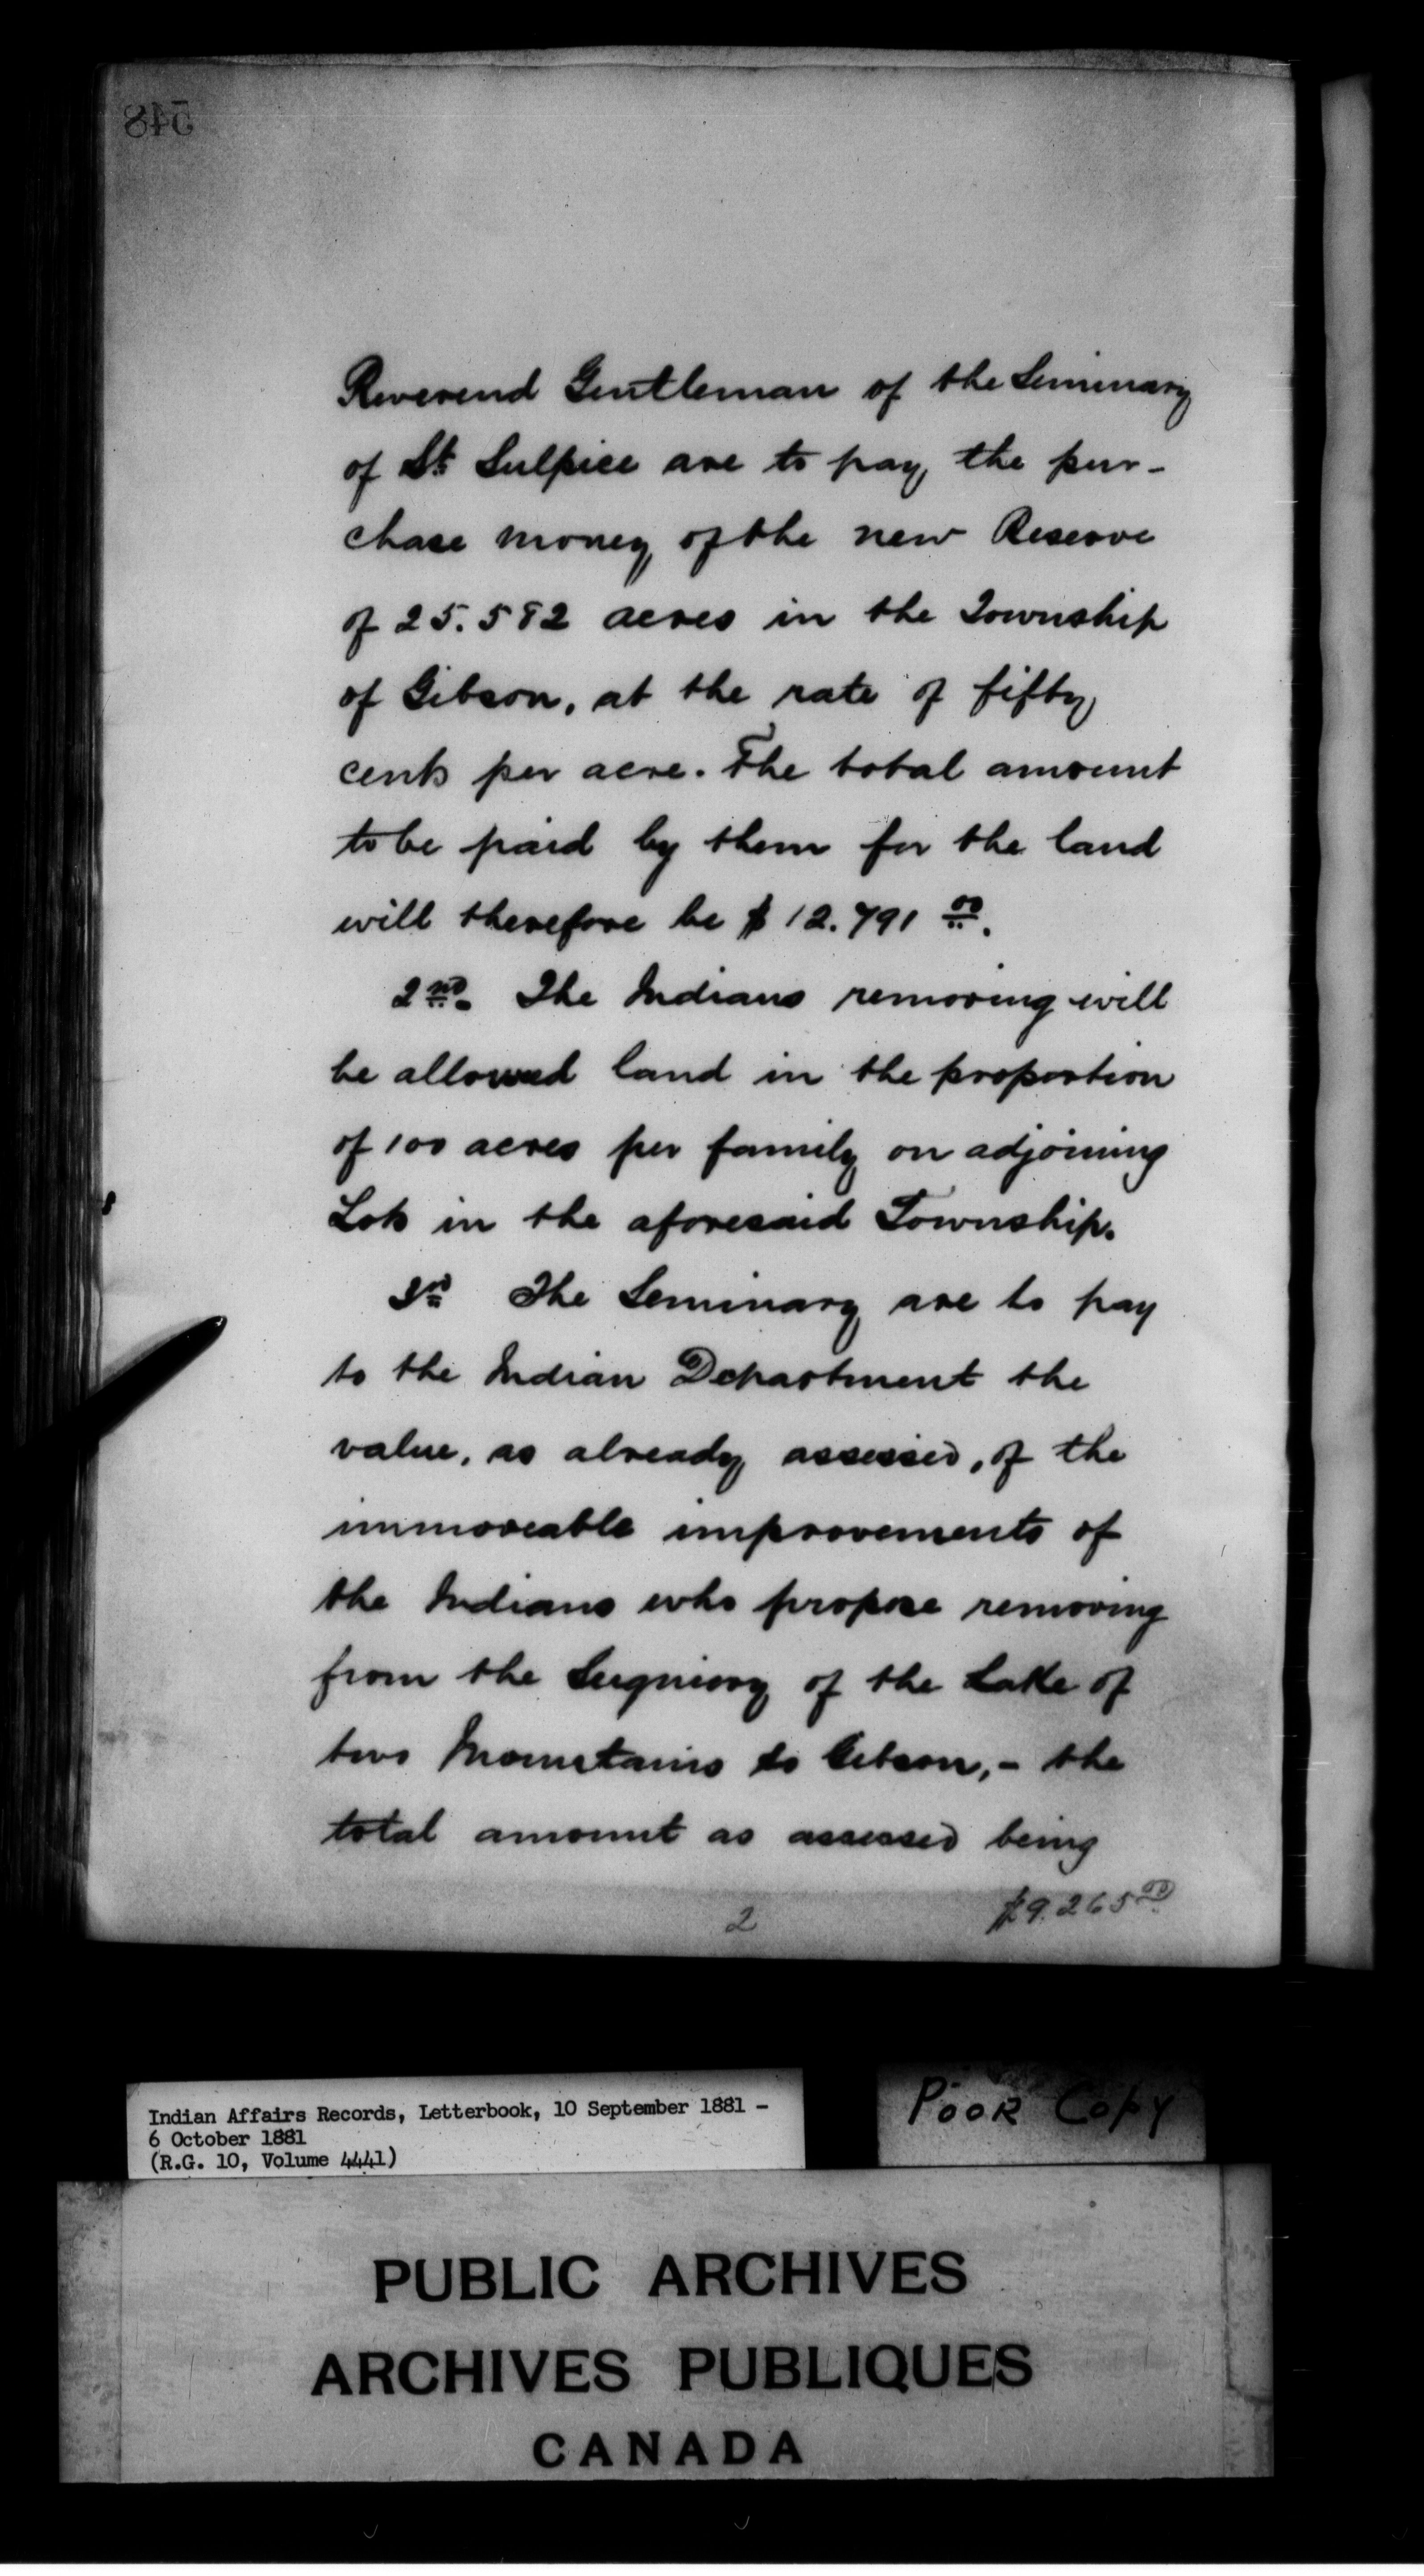 548
Reverend Gentleman of the Seminary
of St Sulpice are to pay the pur-
chase money of the new Reserve
of 25.582 acres in the Township
of Gibson, at the rate of fifty
cents per acre. The total amount
to be paid by them for the land
will therefore be $ 12.791 00.
2nd. The Indians removing will
be allowed land in the proportion
of 100 acres per family on adjoining
Lots in the aforesaid Township.
3rd The Seminary are to pay
to the Indian Department the
value, as already assessed, of the
immoveable improvements of
the Indians who propose removing
from the Seigniory of the Lake of
two Mountains to Gibson, - the
total amount as assessed being
2 $9.265 00
Indian Affairs Records, Letterbook, 10 September 1881 -
6 October 1881
(R.G. 10, Volume 4441)
Poor Copy
PUBLIC ARCHIVES
ARCHIVES PUBLIQUES
CANADA